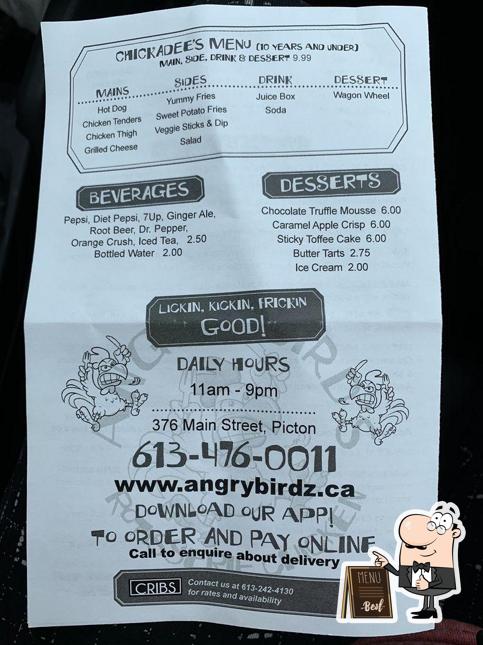 CHICKADEE'S MENU (10 YEARS AND UNDER)
MAIN, SIDE, DRINK & DESSERT 9.99
MAINS
Hot Dog
Chicken Tenders
Chicken Thigh
Grilled Cheese
SIDES
Yummy Fries
Sweet Potato Fries
Veggie Sticks & Dip
Salad
DRINK
Juice Box
Soda
DESSERT
Wagon Wheel
BEVERAGES
Pepsi, Diet Pepsi, 7Up, Ginger Ale,
Root Beer, Dr. Pepper,
Orange Crush, Iced Tea, 2.50
Bottled Water 2.00
DESSERTS
Chocolate Truffle Mousse 6.00
Caramel Apple Crisp 6.00
Sticky Toffee Cake 6.00
Butter Tarts 2.75
Ice Cream 2.00
LICKIN, KICKIN, FRICKIN
GOOD!
DAILY HOURS
11am - 9pm
376 Main Street, Picton
613-476-0011
www.angrybirdz.ca
DOWNLOAD OUR APP!
TO ORDER AND PAY ONLINE
Call to enquire about delivery
CRIBS
Contact us at 613-242-4130
for rates and availability
MENU
Best